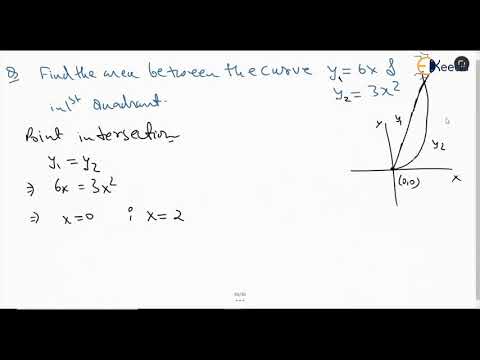 Q Find the area between the curve y₁ = 6x &
y₂ = 3x²
in 1st Quadrant.
Point intersection
y₁ = y₂
⇒ 6x = 3x²
⇒ x=0 ; x=2
y
y₁
y₂
(0,0)
x